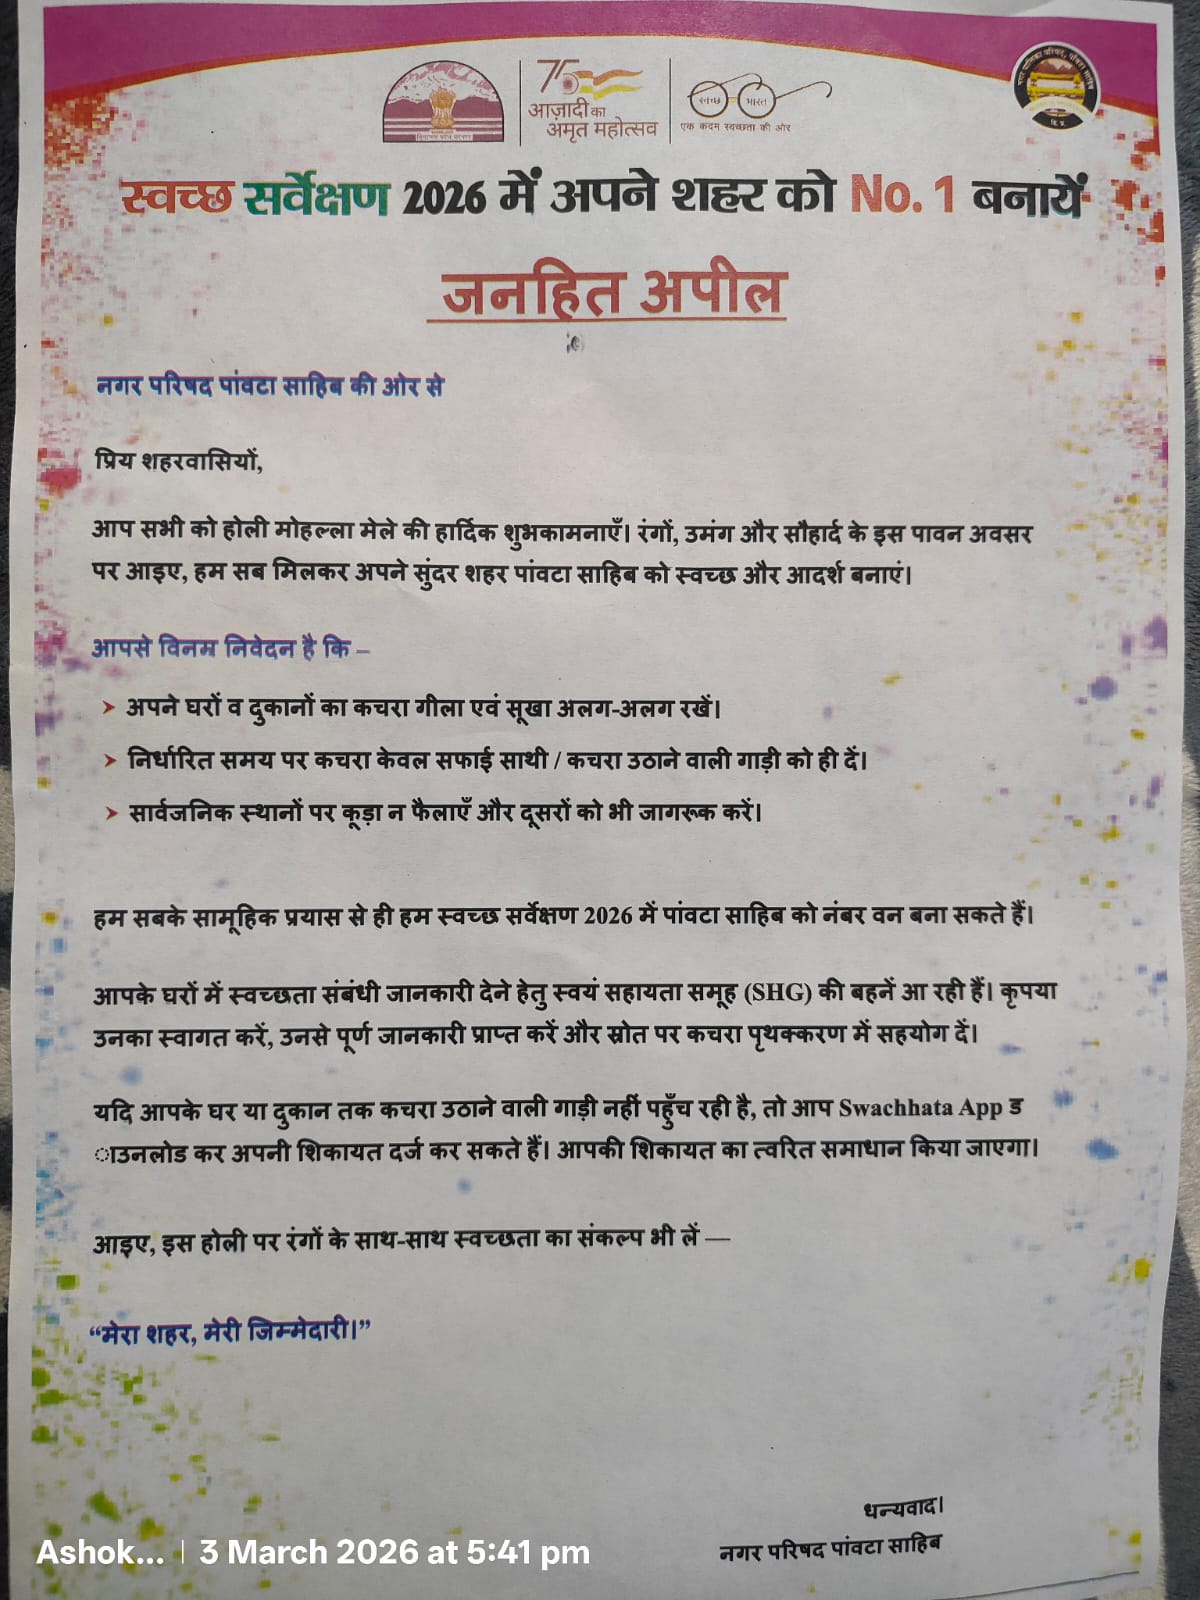 75
आज़ादी का
अमृत महोत्सव
स्वच्छ भारत
एक कदम स्वच्छता की ओर
स्वच्छ सर्वेक्षण 2026 में अपने शहर को No. 1 बनायें
जनहित अपील
नगर परिषद पांवटा साहिब की ओर से
प्रिय शहरवासियों,
आप सभी को होली मोहल्ला मेले की हार्दिक शुभकामनाएँ। रंगों, उमंग और सौहार्द के इस पावन अवसर
पर आइए, हम सब मिलकर अपने सुंदर शहर पांवटा साहिब को स्वच्छ और आदर्श बनाएं।
आपसे विनम्र निवेदन है कि –
➤ अपने घरों व दुकानों का कचरा गीला एवं सूखा अलग-अलग रखें।
➤ निर्धारित समय पर कचरा केवल सफाई साथी / कचरा उठाने वाली गाड़ी को ही दें।
➤ सार्वजनिक स्थानों पर कूड़ा न फैलाएँ और दूसरों को भी जागरूक करें।
हम सबके सामूहिक प्रयास से ही हम स्वच्छ सर्वेक्षण 2026 में पांवटा साहिब को नंबर वन बना सकते हैं।
आपके घरों में स्वच्छता संबंधी जानकारी देने हेतु स्वयं सहायता समूह (SHG) की बहनें आ रही हैं। कृपया
उनका स्वागत करें, उनसे पूर्ण जानकारी प्राप्त करें और स्रोत पर कचरा पृथक्करण में सहयोग दें।
यदि आपके घर या दुकान तक कचरा उठाने वाली गाड़ी नहीं पहुँच रही है, तो आप Swachhata App ड
ाउनलोड कर अपनी शिकायत दर्ज कर सकते हैं। आपकी शिकायत का त्वरित समाधान किया जाएगा।
आइए, इस होली पर रंगों के साथ-साथ स्वच्छता का संकल्प भी लें —
“मेरा शहर, मेरी जिम्मेदारी।”
धन्यवाद।
नगर परिषद पांवटा साहिब
Ashok... | 3 March 2026 at 5:41 pm